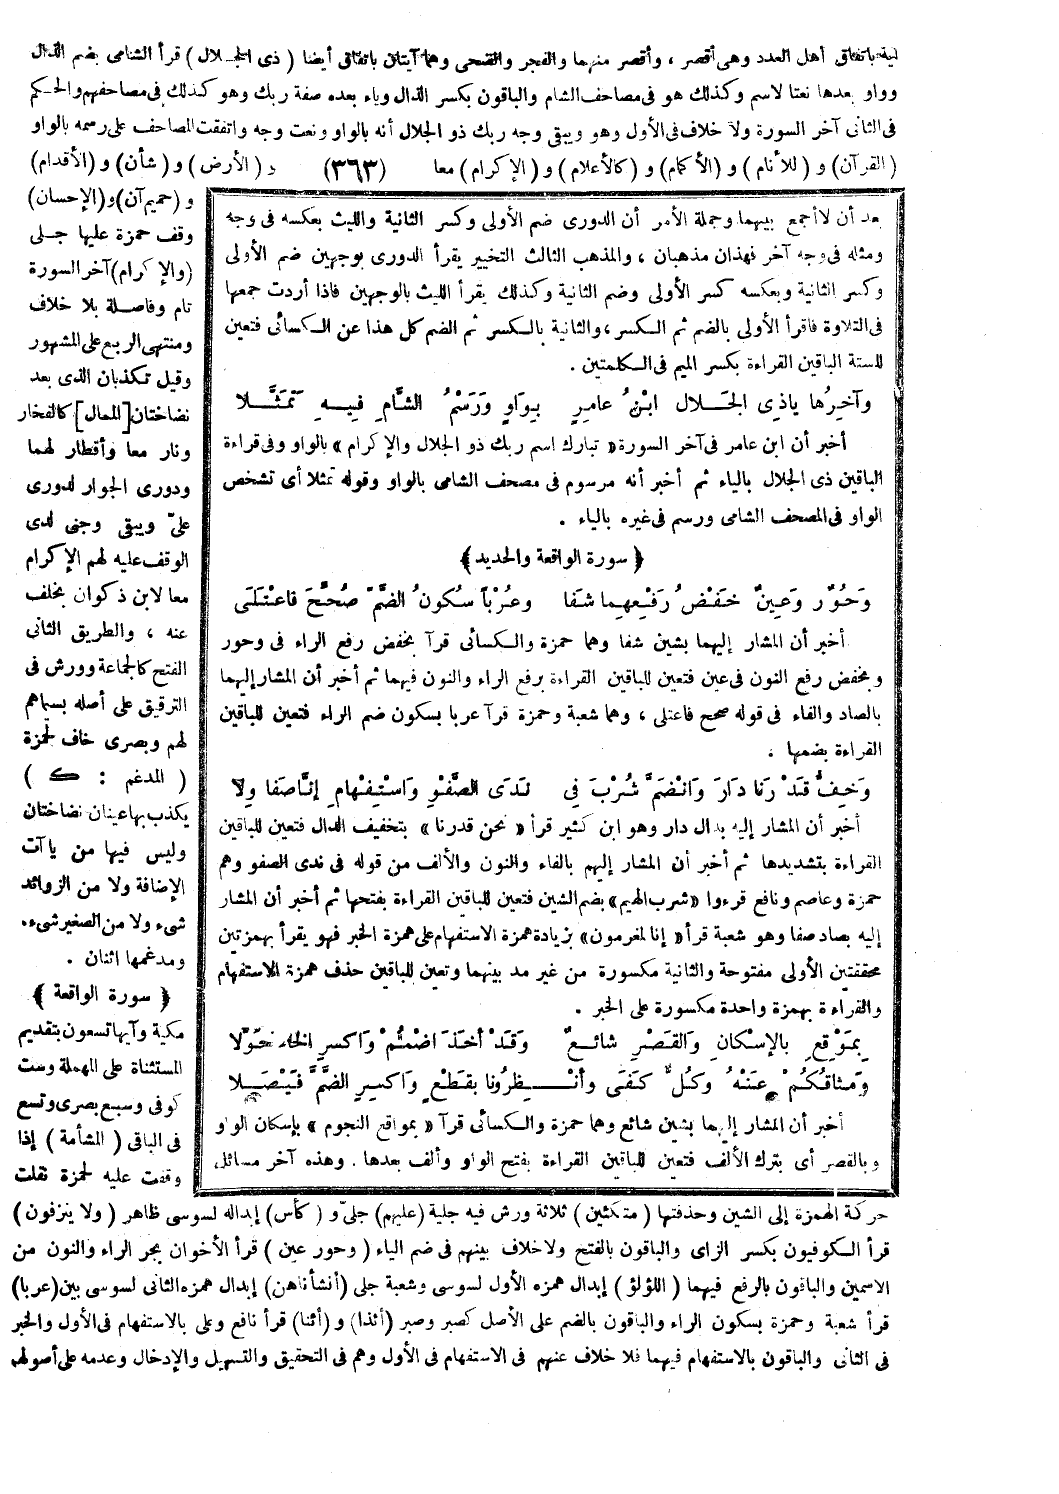 لية باتفاق أهل العدد وهى أقصر ، وأقصر منهما والفجر والضحى وهما آيتان باتفاق أيضا ( ذى الجلال ) قرأ الشامى بضم الذال
وواو بعدها نعتا لاسم وكذلك هو فى مصاحف الشام والباقون بكسر الذال وياء بعده صفة ربك وهو كذلك فى مصاحفهم والحكم
فى الثانى آخر السورة ولا خلاف فى الأول وهو ويبقى وجه ربك ذو الجلال أنه بالواو ونعت وجه واتفقت المصاحف على رسمه بالواو
( القرآن ) و ( للأنام ) و ( الأكمام ) و ( كالأعلام ) و ( الإكرام ) معا (٣٦٣) و ( الأرض ) و ( شأن ) و (الأقدام)
بعد أن لا أجمع بينهما وجملة الأمر أن الدورى ضم الأولى وكسر الثانية والليث بعكسه فى وجه
ومثله فى وجه آخر فهذان مذهبان ، والمذهب الثالث التخيير يقرأ الدورى بوجهين ضم الأولى
وكسر الثانية وبعكسه كسر الأولى وضم الثانية وكذلك يقرأ الليث بالوجهين فاذا أردت جمعها
فى التلاوة فاقرأ الأولى بالضم ثم الكسر ، والثانية بالكسر ثم الضم كل هذا عن الكسائى فتعين
للستة الباقين القراءة بكسر الميم فى الكلمتين .
وَآخِرُها ياذِى الجَلال ابْنُ عامِرٍ بِوَاوٍ وَرَسْمُ الشَّامِ فِيهِ تَمَثَّلا
أخبر أن ابن عامر فى آخر السورة « تبارك اسم ربك ذو الجلال والإكرام » بالواو وفى قراءة
الباقين ذى الجلال بالياء ثم أخبر أنه مرسوم فى مصحف الشامى بالواو وقوله تمثلا أى تشخص
الواو فى المصحف الشامى ورسم فى غيره بالياء .
﴿ سورة الواقعة والحديد ﴾
وَحُورٌ وَعِينٌ خَفْضُ رَفْعِهِما شَفا وعُرْباً سُكونُ الضَّمّ صُحِّحَ فاعْتَلَى
أخبر أن المشار إليهما بشين شفا وهما حمزة والكسائى قرآ بخفض رفع الراء فى وحور
وبخفض رفع النون فى عين فتعين للباقين القراءة برفع الراء والنون فيهما ثم أخبر أن المشار إليهما
بالصاد والفاء فى قوله صحح فاعتلى ، وهما شعبة وحمزة قرآ عربا بسكون ضم الراء فتعين للباقين
القراءة بضمها .
وَخِفُّ قَدَرْنا دَارَ وَانْضَمَّ شُرْبَ فِى نَدَى الصَّفْوِ وَاسْتِفْهامِ إنَّا صَفا وِلا
أخبر أن المشار إليه بدال دار وهو ابن كثير قرأ « نحن قدرنا » بتخفيف الدال فتعين للباقين
القراءة بتشديدها ثم أخبر أن المشار إليهم بالفاء والنون والألف من قوله فى ندى الصفو وهم
حمزة وعاصم ونافع قرءوا « شرب الهيم » بضم الشين فتعين للباقين القراءة بفتحها ثم أخبر أن المشار
إليه بصاد صفا وهو شعبة قرأ « إنا لمغرمون » بزيادة همزة الاستفهام على همزة الخبر فهو يقرأ بهمزتين
محققتين الأولى مفتوحة والثانية مكسورة من غير مد بينهما وتعين للباقين حذف همزة الاستفهام
والقراءة بهمزة واحدة مكسورة على الخبر .
بِمَوْقِعِ بالإسْكانِ وَالقَصْرِ شائعٌ وَقَدْ أخَذَ اضْمُمْ وَاكسرِ الخاء حُوّلا
وَمثاقُكُمْ عَنْهُ وَكُلٌّ كَفَى وأنْظِرُونا بقَطْعٍ وَاكسِرِ الضَّمَّ فَيْصَلا
أخبر أن المشار إليهما بشين شائع وهما حمزة والكسائى قرآ « بمواقع النجوم » بإسكان الواو
وبالقصر أى بترك الألف فتعين للباقين القراءة بفتح الواو وألف بعدها . وهذه آخر مسائل
و ( حميم آن) و(الإحسان)
وقف حمزة عليها جلى
(والإكرام) آخر السورة
تام وفاصلة بلا خلاف
ومنتهى الربع على المشهور
وقيل تكذبان الذى بعد
نضاختان [الممال] كالفخار
ونار معا وأقطار لهما
ودورى الجوار لدورى
علىّ ويبقى وجنى لدى
الوقف عليه لهم الإكرام
معا لابن ذكوان بخلف
عنه ، والطريق الثانى
الفتح كالجماعة وورش فى
الترقيق على أصله بسيماهم
لهم وبصرى خاف لحمزة
( المدغم : ك )
يكذب بها عينان نضاختان
وليس فيها من ياآت
الإضافة ولا من الزوائد
شىء ولا من الصغير شىء.
ومدغمها اثنان .
﴿ سورة الواقعة ﴾
مكية وآيها تسعون بتقديم
المستثناة على المهملة وست
كوفى وسبع بصرى وتسع
فى الباقى ( المشأمة ) إذا
وقفت عليه لحمزة نقلت
حركة الهمزة إلى الشين وحذفتها ( متكئين ) ثلاثة ورش فيه جلية (عليهم) جلىّ و ( كأس) إبداله لسوسى ظاهر ( ولا ينزفون )
قرأ الكوفيون بكسر الزاى والباقون بالفتح ولاخلاف بينهم فى ضم الياء ( وحور عين ) قرأ الأخوان بجر الراء والنون من
الاسمين والباقون بالرفع فيهما ( اللؤلؤ ) إبدال همزه الأول لسوسى وشعبة جلى (أنشأناهن) إبدال همزه الثانى لسوسى بين (عربا)
قرأ شعبة وحمزة بسكون الراء والباقون بالضم على الأصل كصبر وصبر (أئذا) و (أئنا) قرأ نافع وعلى بالاستفهام فى الأول والخبر
فى الثانى والباقون بالاستفهام فيهما فلا خلاف عنهم فى الاستفهام فى الأول وهم فى التحقيق والتسهيل والإدخال وعدمه على أصولهم